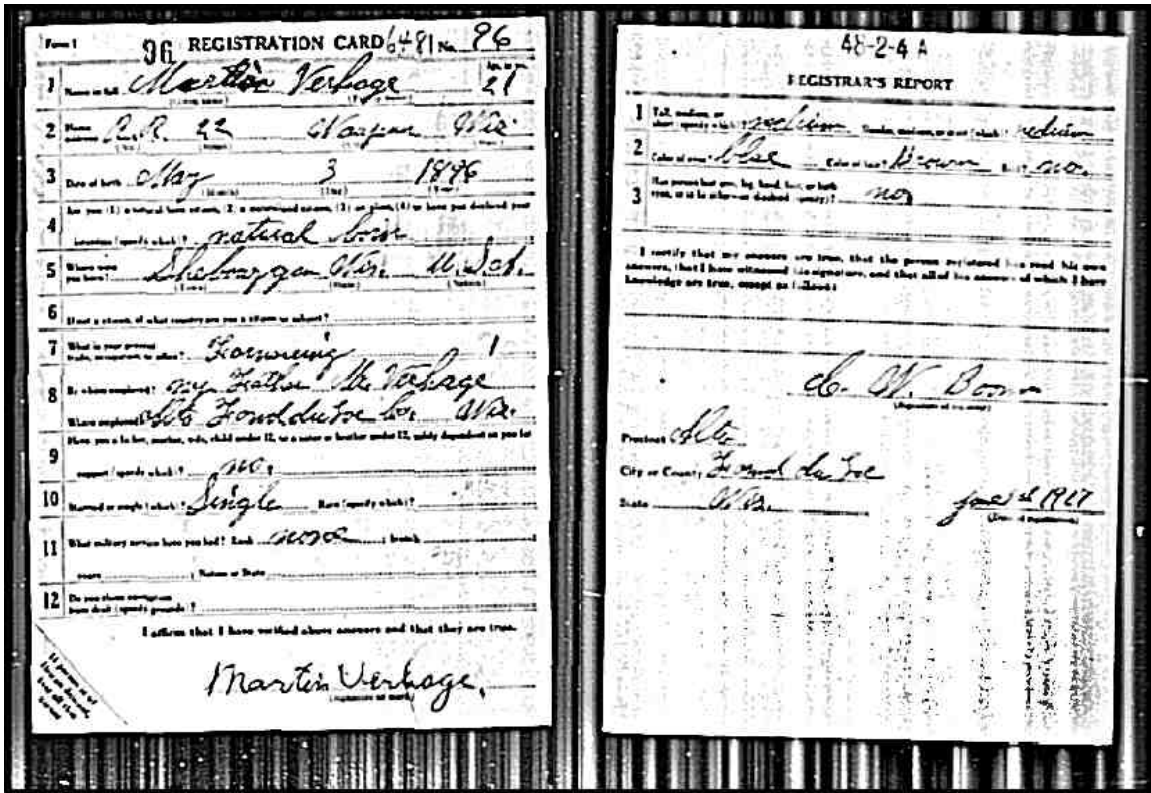 Form 1 96 REGISTRATION CARD 6481 No. 96
1 Name in full Martin Verhage Age, in yrs. 21
(Given name) (Family name)
2 Home address R.R. 22 Waupun Wis.
3 Date of birth May 3 1896
(Month) (Day) (Year)
4 Are you (1) a natural born citizen, (2) a naturalized citizen, (3) an alien, (4) or have you declared your
intention (specify which)? natural born
5 Where were you born? Sheboygan Wis. U.S.A.
(Town) (State) (Nation)
6 If not a citizen, of what country are you a citizen or subject?
7 What is your present trade, occupation, or office? Farmering 1
8 By whom employed? my Father Verhage
Where employed? Alto Fond du Lac Co. Wis.
9 Have you a father, mother, wife, child under 12, or a sister or brother under 12, solely dependent on you for
support (specify which)? no.
10 Married or single (which)? Single Race (specify which)?
11 What military service have you had? Rank none ; branch
years ; Nation or State
12 Do you claim exemption from draft (specify grounds)?
I affirm that I have verified above answers and that they are true.
Martin Verhage.
(Signature or mark)
48-2-4 A
REGISTRAR'S REPORT
1 Tall, medium, or short (specify which)? medium Slender, medium, or stout (which)? medium
2 Color of eyes? blue Color of hair? Brown Bald? no.
3 Has person lost arm, leg, hand, foot, or both
eyes, or is he otherwise disabled (specify)? no
I certify that my answers are true, that the person registered has read his own
answers, that I have witnessed his signature, and that all of his answers of which I have
knowledge are true, except as follows:
W.
(Signature of registrar)
Precinct Alto
City or County Fond du Lac
State Wis. June 1917
(Date of registration)